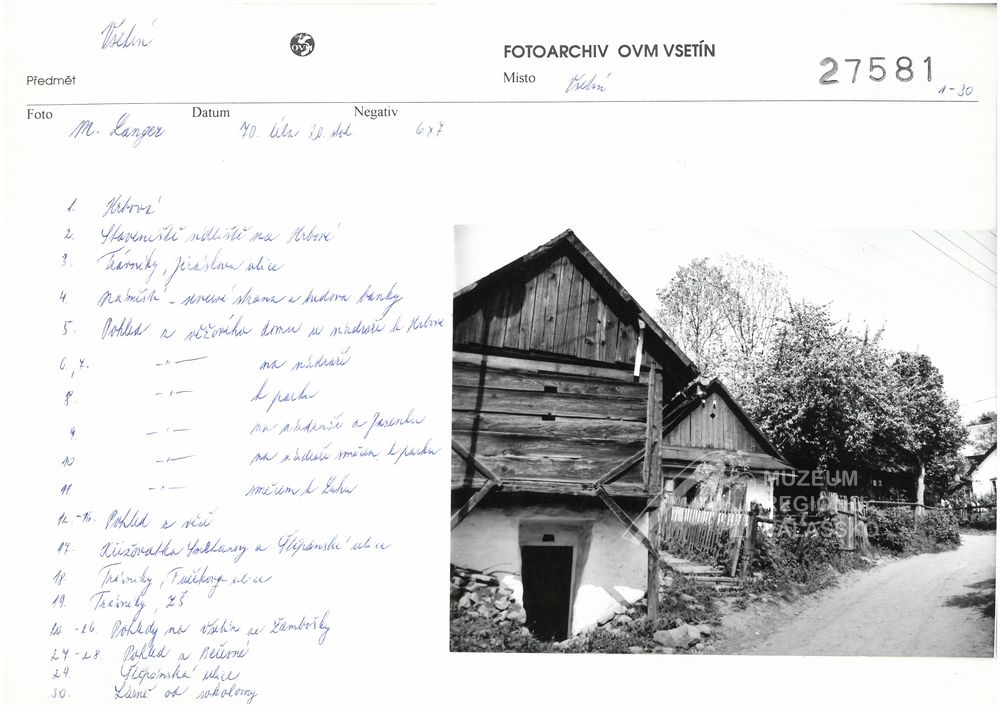 Vsetín
OVM
FOTOARCHIV OVM VSETÍN
27581
1-30
Předmět
Místo Vsetín
Foto Datum Negativ
M. Langer 70. léta 20. stol. 6x7
1. Hrbová
2. Staveniště sídliště na Hrbové
3. Trávníky, Jiráskova ulice
4. Náměstí - severní strana a budova banky
5. Pohled z věžového domu u nádraží k Hrbové
6.,7. -"- na nádraží
8. -"- k parku
9 -"- na nádraží a Jasenku
10. -"- na nádraží směrem k parku
11. -"- směrem k Luhu
12.-16. Pohled z věže
17. Křižovatka Smetanovy a Štěpánské ulice
18. Trávníky, Fučíkova ulice
19. Trávníky, ZŠ
20.-26. Pohledy na Vsetín ze Žambošky
27-28. Pohled z Bečevné
29. Štěpánská ulice
30. Lázně od sokolovny
MUZEUM
REGION
VALAŠSKO